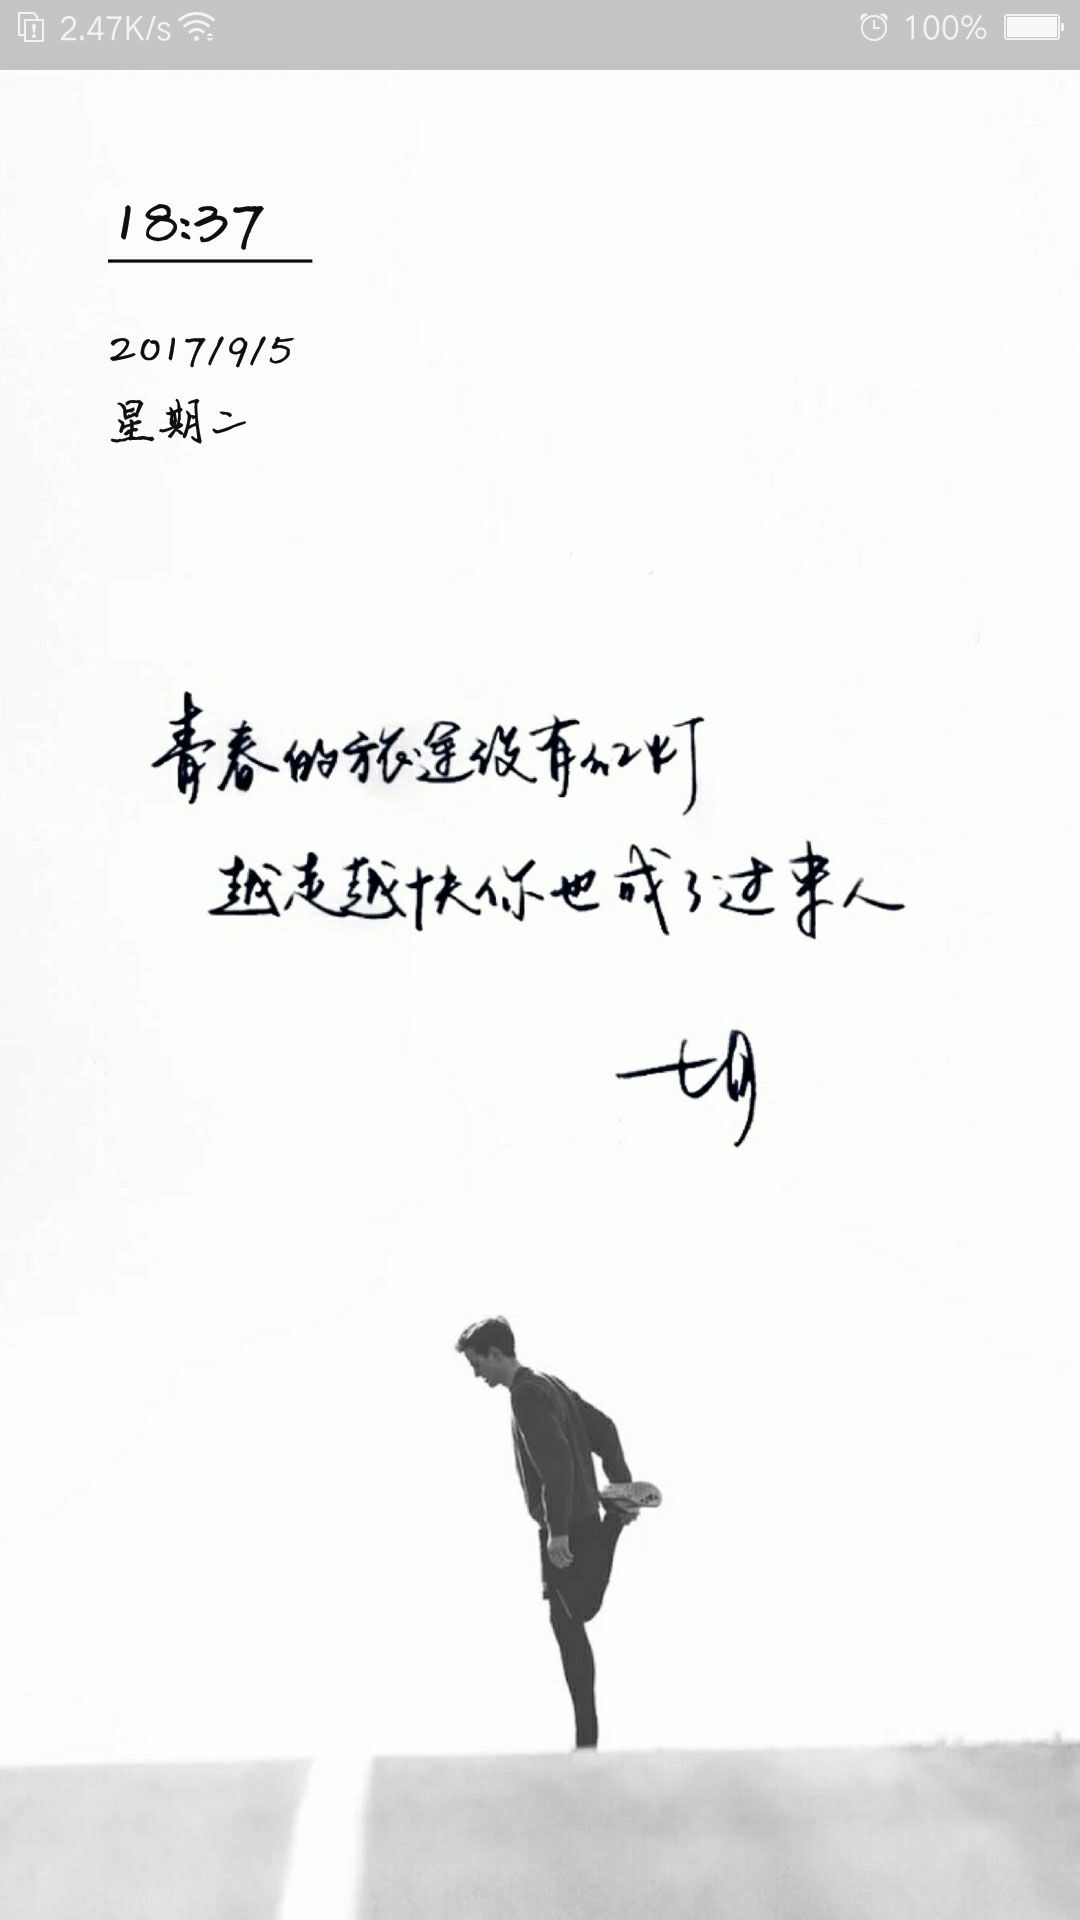 2.47K/s 100%
18:37
2017/9/5
星期二
青春的旅途没有红灯
越走越快你也成了过来人
七月